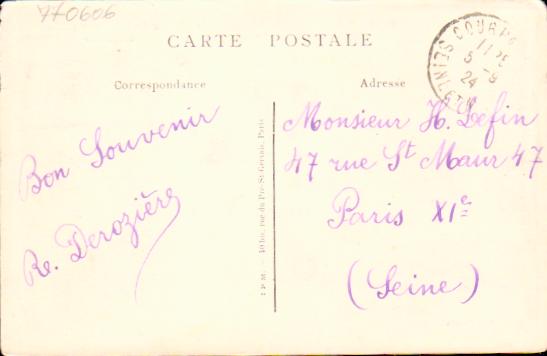 770606
CARTE POSTALE
Correspondance
Adresse
COURP
11
5 -9
24
Bon Souvenir
Re. Derozière
Monsieur H. Lefin
47 rue St Maur 47
Paris XIe
(Seine)
I P M — 40 bis, rue du Pré-St-Gervais, Paris